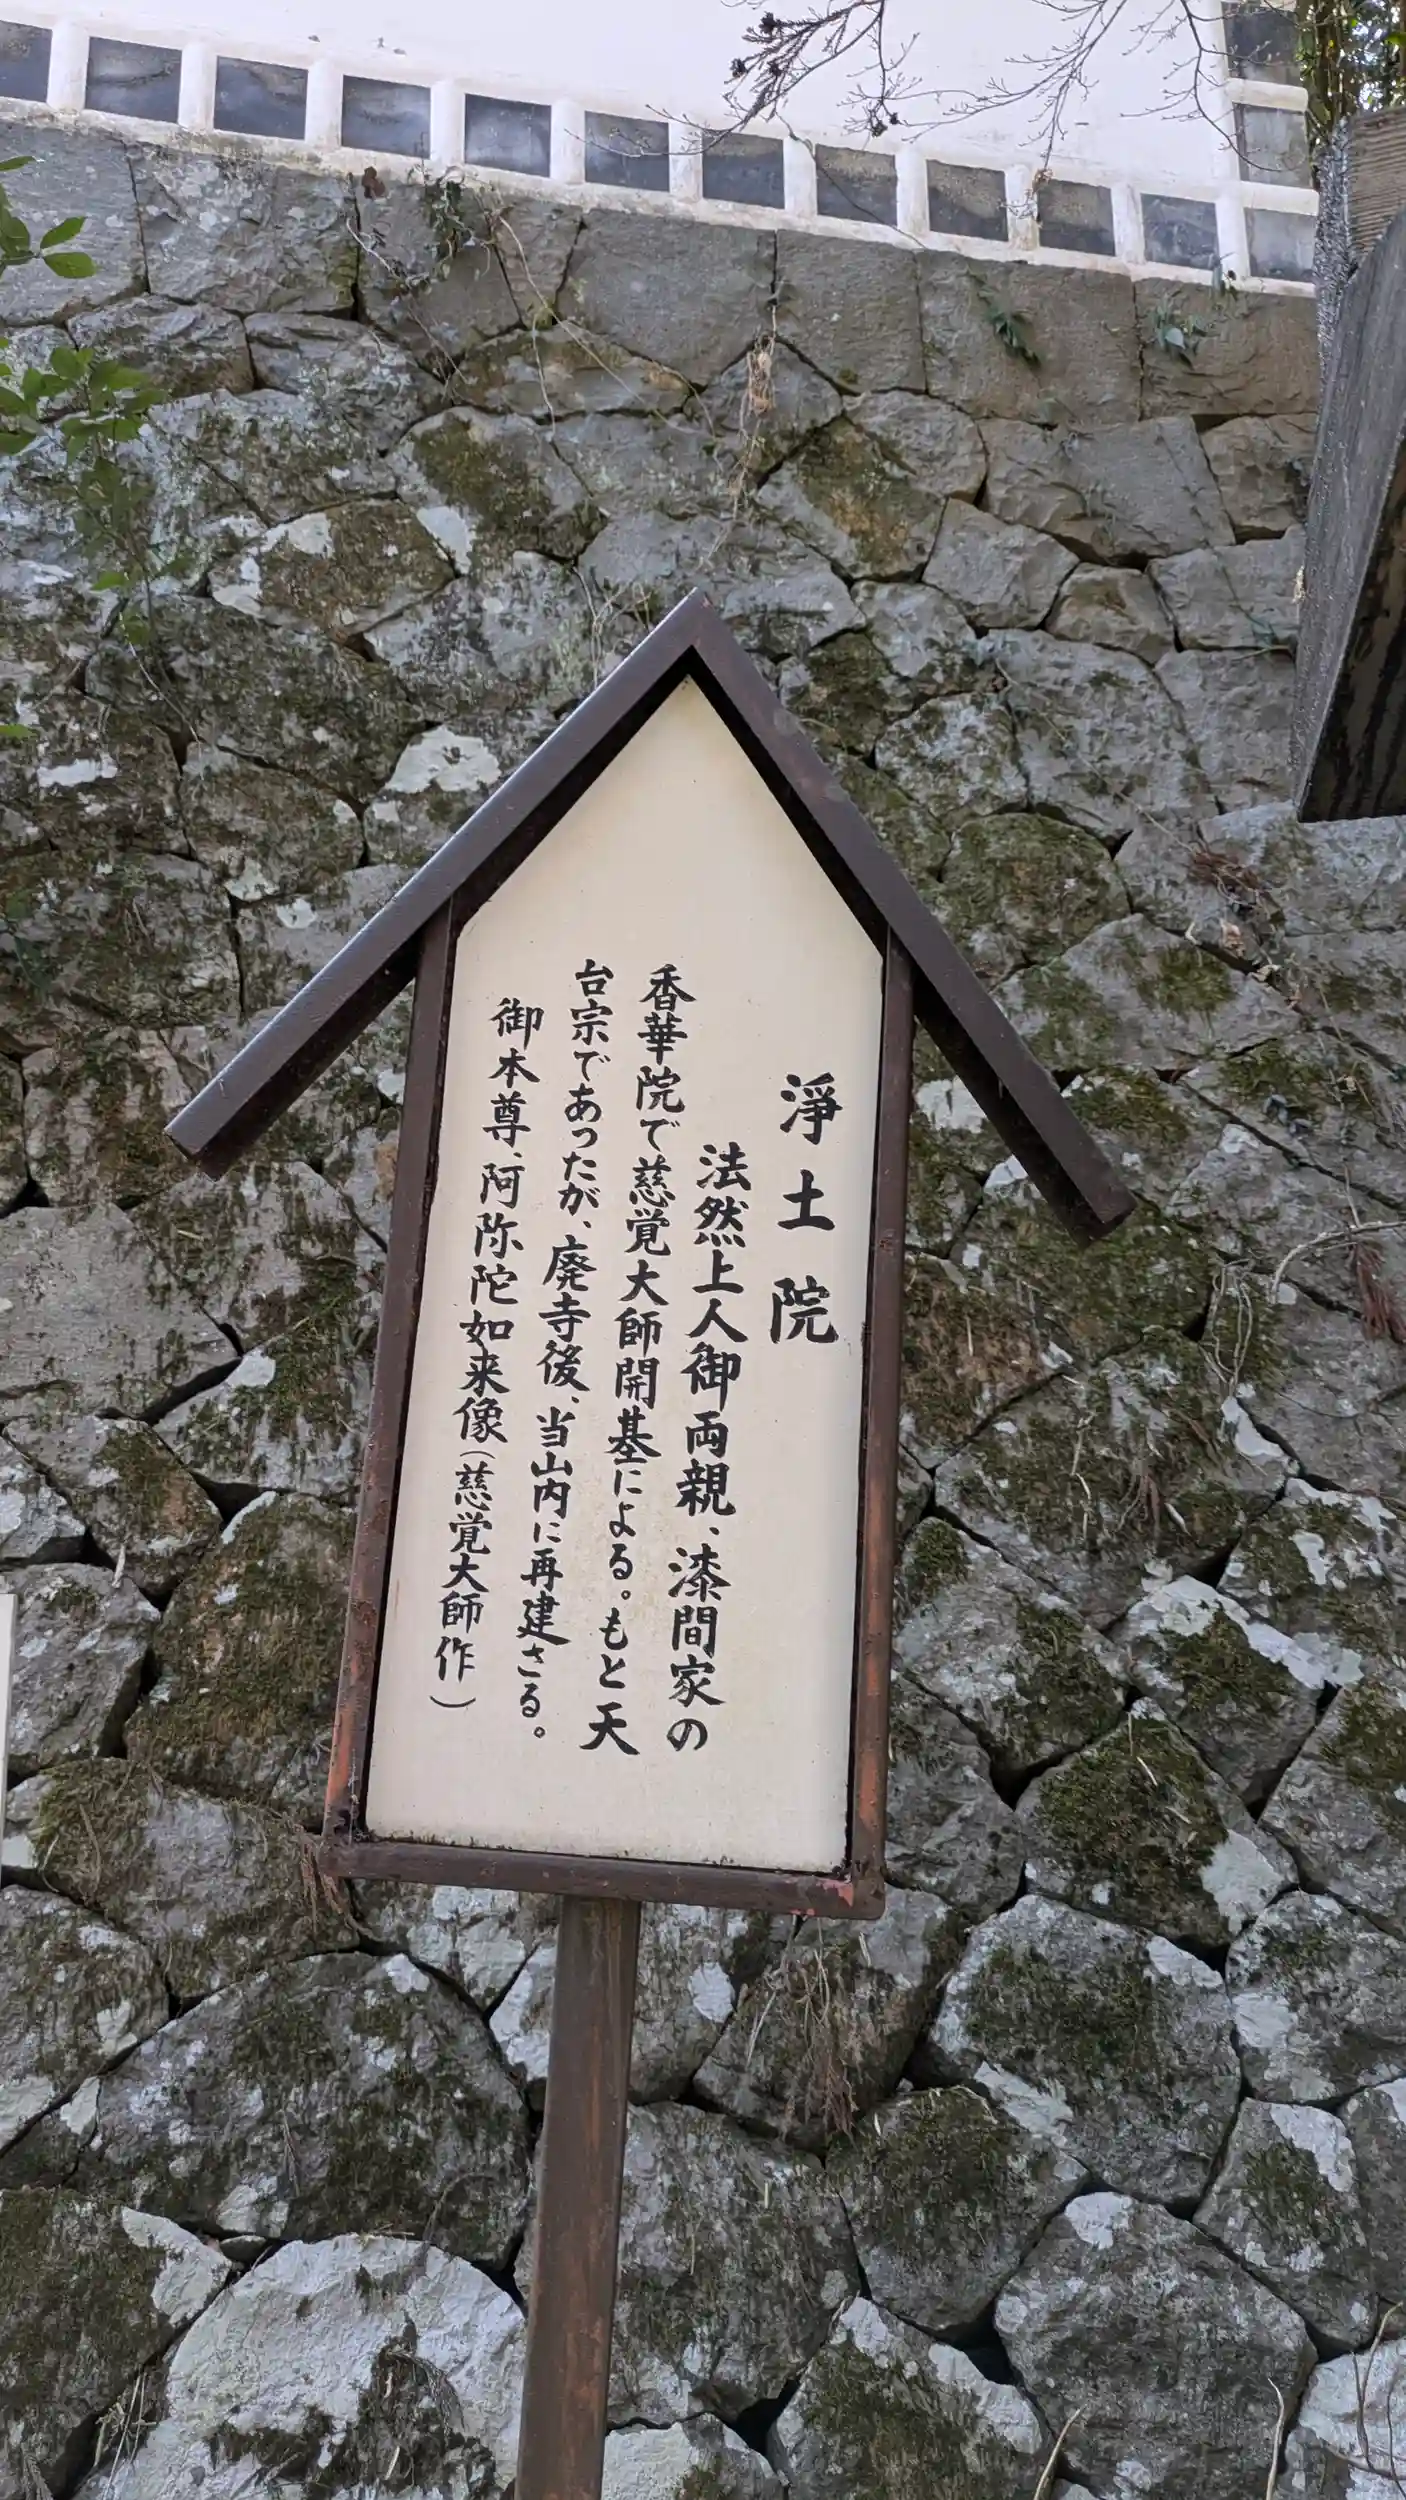 淨土院
法然上人御両親、漆間家の
香華院で慈覚大師開基による。もと天
台宗であったが、廃寺後、当山内に再建さる。
御本尊、阿弥陀如来像(慈覚大師作)